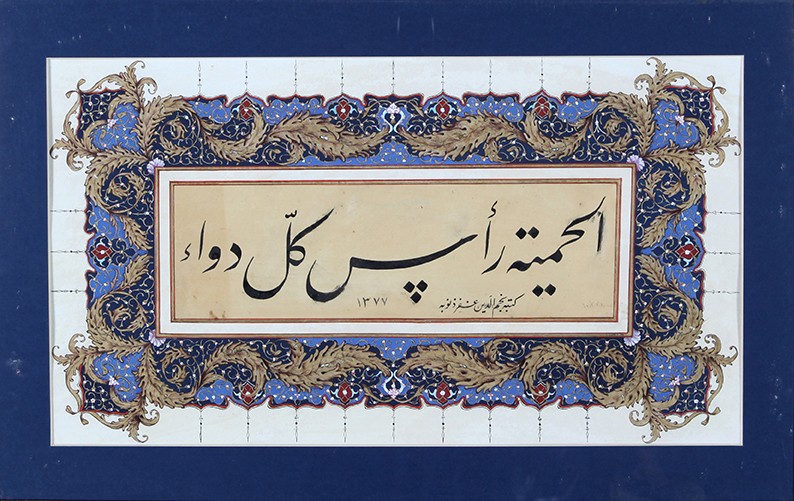 الحمية رأس كلّ دواء
كتبه نجم الدّين غفر ذنوبه
١٣٧٧